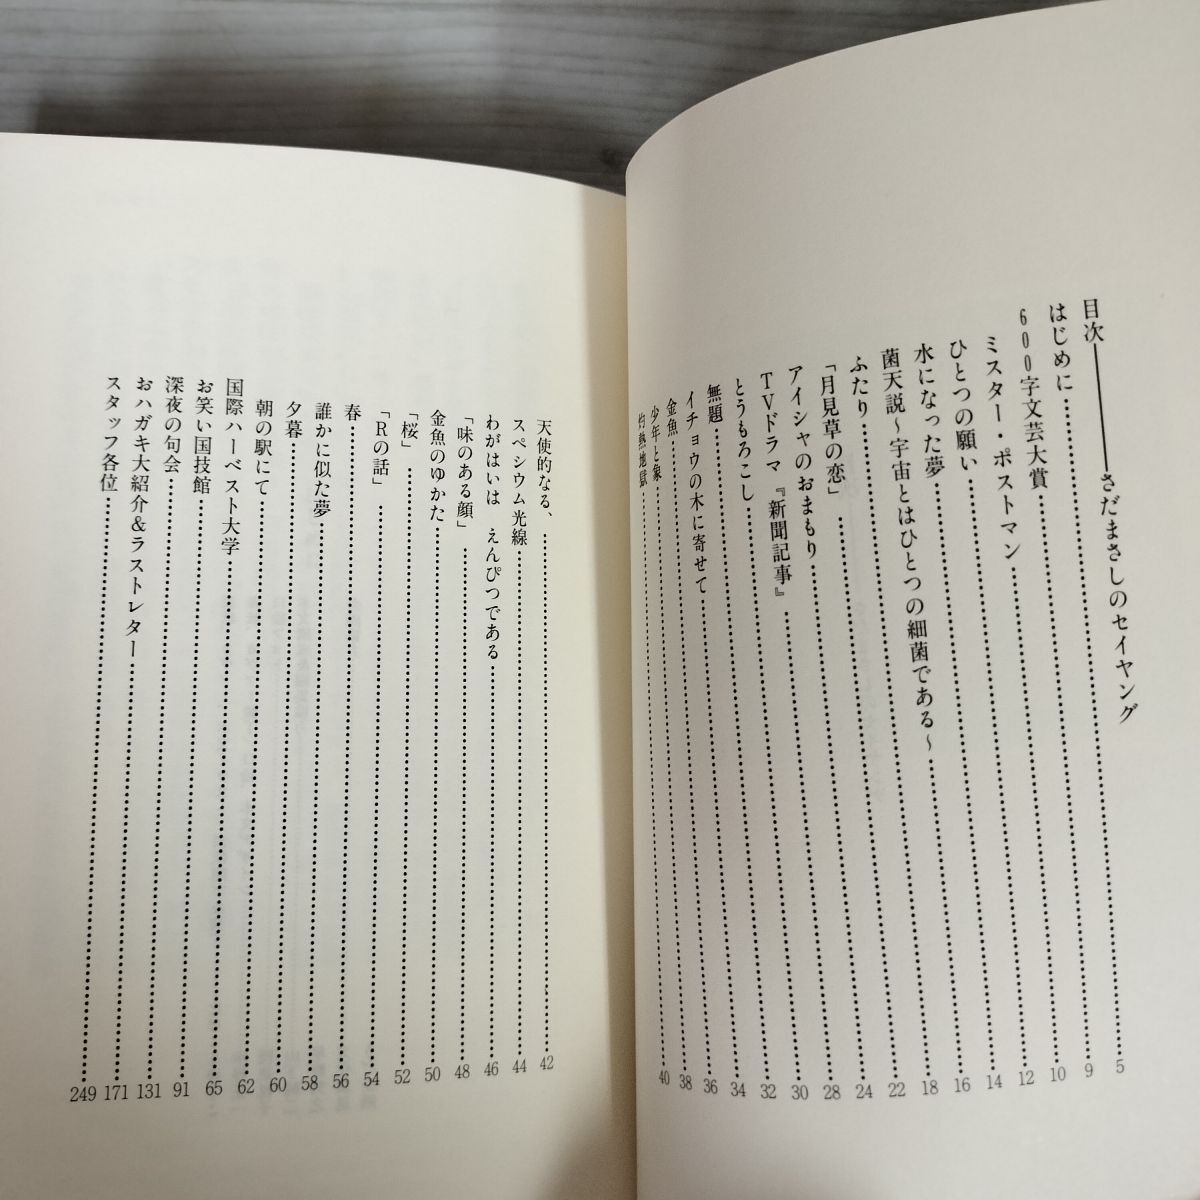 目次――さだまさしのセイヤング
はじめに……5
600字文芸大賞……9
ミスター・ポストマン……10
ひとつの願い……12
水になった夢……14
菌天説～宇宙とはひとつの細菌である～……16
ふたり……18
「月見草の恋」……22
アイシャのおまもり……24
TVドラマ『新聞記事』……28
とうもろこし……30
無題……32
イチョウの木に寄せて……34
金魚……36
少年と象……38
灼熱地獄……40
天使的なる、……42
スペシウム光線……44
わがはいは えんぴつである……46
「味のある顔」……48
金魚のゆかた……50
「桜」……52
「Rの話」……54
春……56
誰かに似た夢……58
夕暮……60
朝の駅にて……62
国際ハーベスト大学……65
お笑い国技館……91
深夜の句会……131
おハガキ大紹介&ラストレター……171
スタッフ各位……249